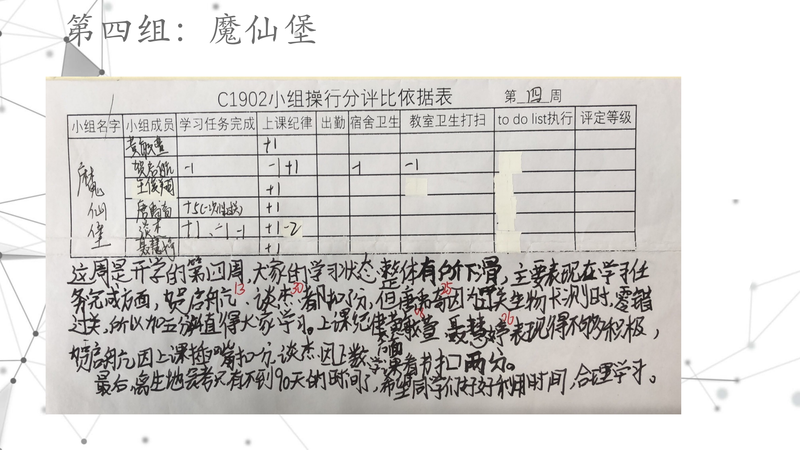 第四组：魔仙堡
C1902小组操行分评比依据表 第 四 周
小组名字 小组成员 学习任务完成 上课纪律 出勤 宿舍卫生 教室卫生打扫 to do list执行 评定等级
魔仙堡
+1
贺启航 -1 -1 +1 -1 -1
+1
+5 +1
谈杰 +1 -1 -1 +1 -2
聂慧婷 +1
这周是开学的第四周，大家的学习状态整体有所下滑，主要表现在学习任
务完成方面，贺启航、谈杰都扣分，但唐禹因为过关生物卡测时，零错
13 30 35
过关，所以加五分，值得大家学习。上课纪律黄敏萱、聂慧婷表现得不够积极，
26
贺启航因上课插嘴扣分，谈杰因上数学课看书扣两分。
最后，离生地会考只有不到90天的时间了，希望同学们好好利用时间，合理学习。